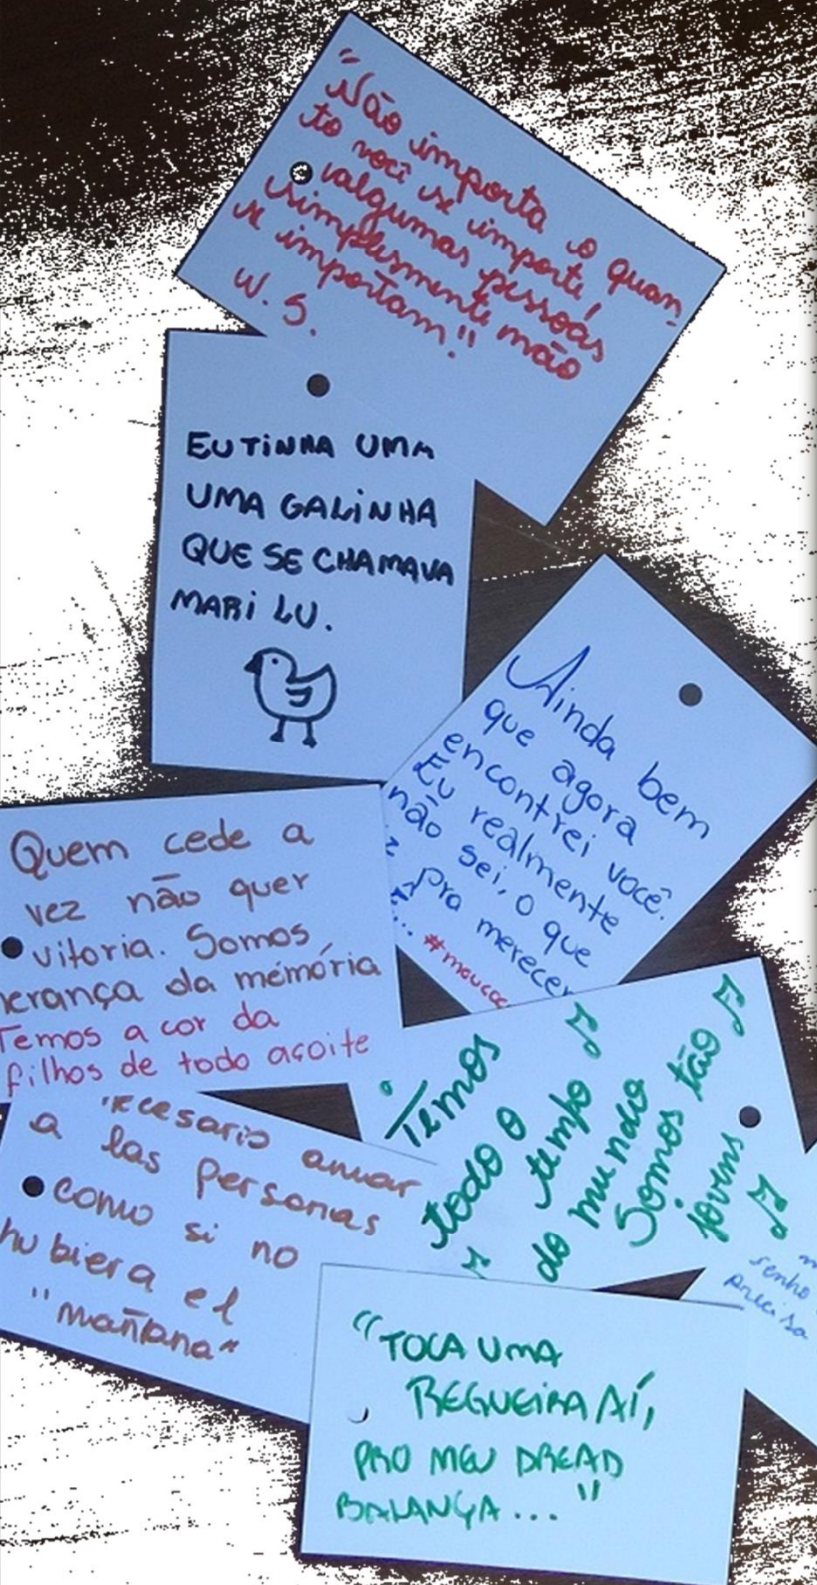 "Não importa o quan-
to você se importe,
algumas pessoas
simplesmente não
se importam."
W. S.
EU TINHA UMA
UMA GALINHA
QUE SE CHAMAVA
MARI LU.
Ainda bem
que agora
encontrei você.
Eu realmente
não sei, o que
pra merecer
... #meucoc
Quem cede a
vez não quer
vitoria. Somos
herança da memória
Temos a cor da
filhos de todo açoite
Temos
todo o
tempo
do mundo
Somos tão
jovens
ecesario amar
a las personas
como si no
hubiera el
"mañana"
senho
precisa
"TOCA UMA
REGUEIRA AÍ,
PRO MEU DREAD
BALANÇA... "